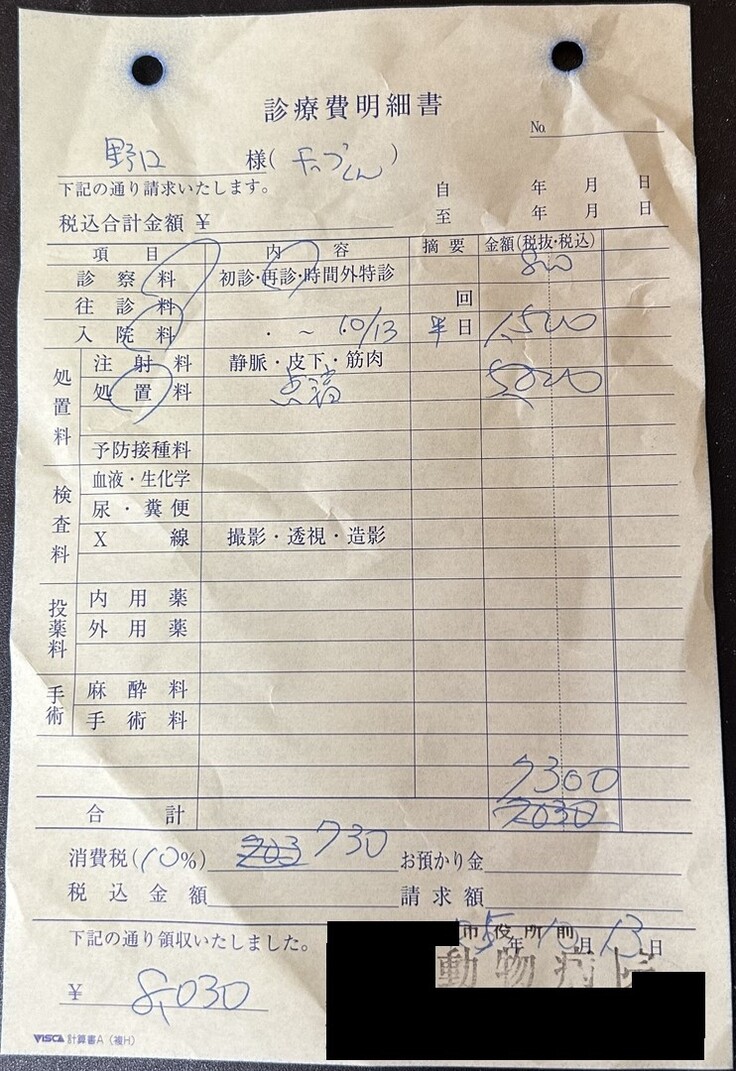 診療費明細書
No.
野口 様(チップくん)
下記の通り請求いたします。 自 年 月 日
税込合計金額 ¥ 至 年 月 日
項目 内容 摘要 金額(税抜・税込)
診察料 初診・再診・時間外特診 800
往診料 回
入院料 ・ ~ 10/13 半日 1,500
処置料 注射料 静脈・皮下・筋肉
処置料 点滴 5,000
予防接種料
検査料 血液・生化学
尿・糞便
X線 撮影・透視・造影
投薬料 内用薬
外用薬
手術 麻酔料
手術料
7300
合計 7030
消費税(10%) 703 730 お預かり金
税込金額 請求額
市役所前
下記の通り領収いたしました。 5年10月13日
動物病院
¥ 8,030
VISCA 計算書A(複H)